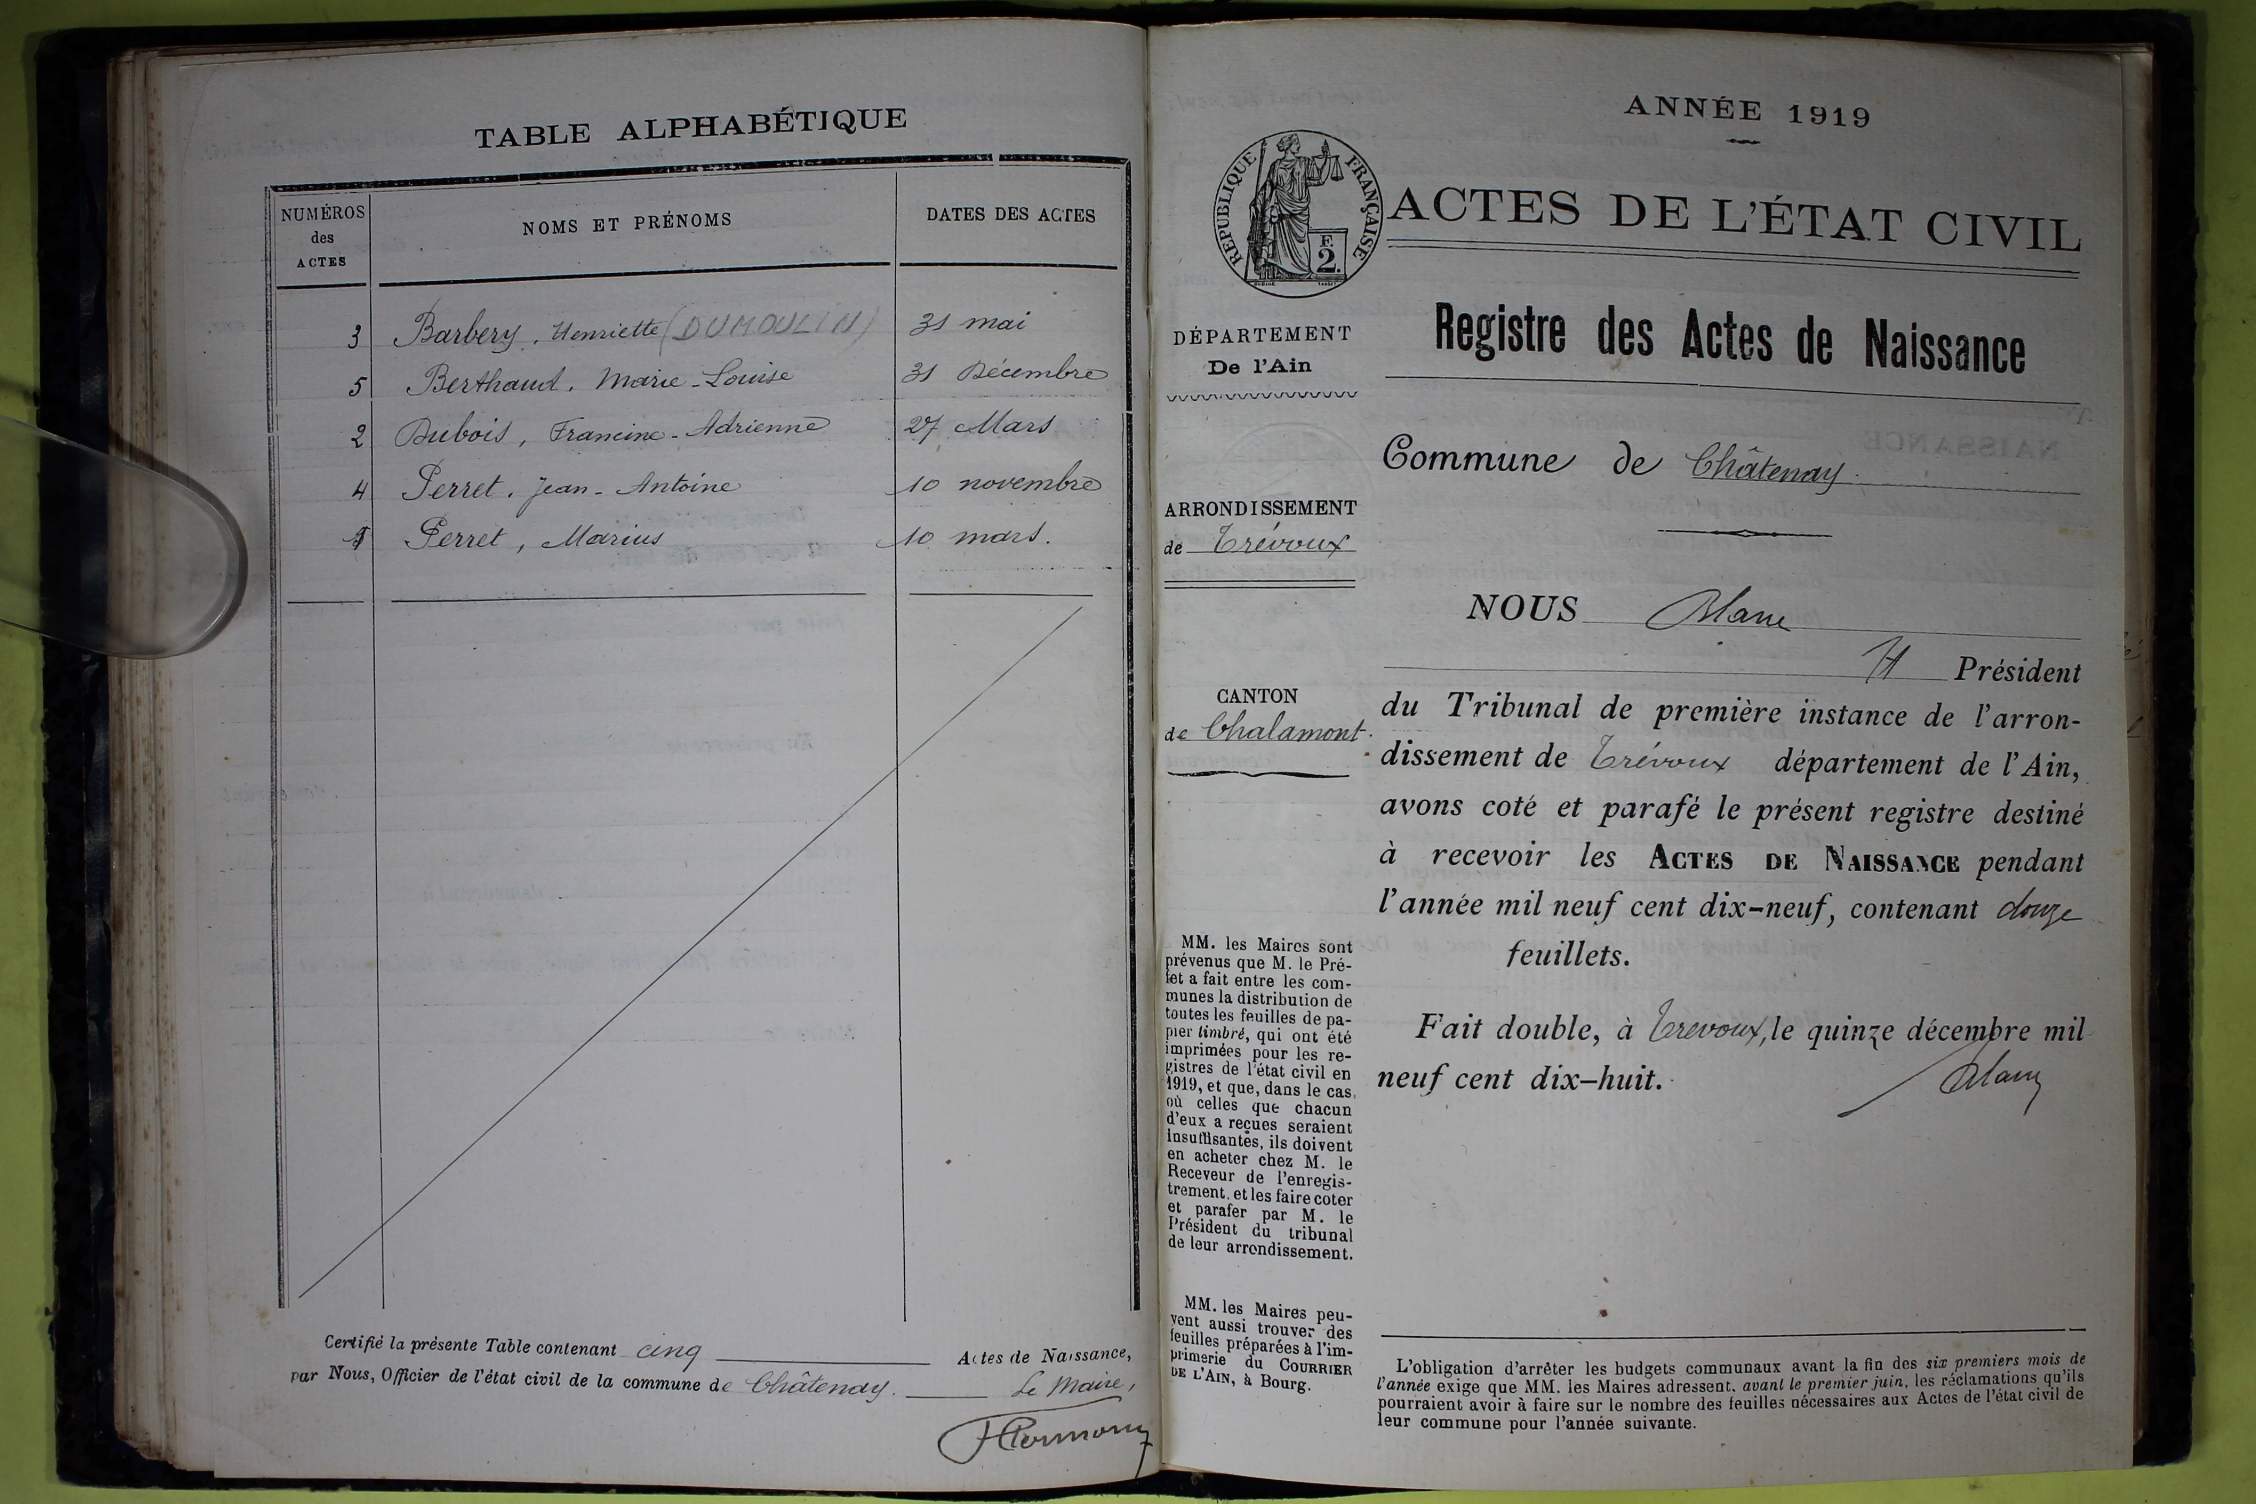 TABLE ALPHABÉTIQUE
NUMÉROS
des
ACTES
NOMS ET PRÉNOMS
DATES DES ACTES
3 Barbery, Henriette (DUMOULIN) 31 mai
5 Berthaud, Marie-Louise 31 Décembre
2 Dubois, Francine-Adrienne 27 Mars
4 Perret, Jean-Antoine 10 novembre
1 Perret, Marius 10 mars.
Certifié la présente Table contenant cinq Actes de Naissance,
par Nous, Officier de l'état civil de la commune de Châtenay.
Le Maire,
ANNÉE 1919
RÉPUBLIQUE FRANÇAISE
F.
2.
ACTES DE L'ÉTAT CIVIL
Registre des Actes de Naissance
DÉPARTEMENT
De l'Ain
Commune de Châtenay.
ARRONDISSEMENT
de Trévoux
CANTON
de Chalamont.
MM. les Maires sont
prévenus que M. le Pré-
fet a fait entre les com-
munes la distribution de
toutes les feuilles de pa-
pier timbré, qui ont été
imprimées pour les re-
gistres de l'état civil en
1919, et que, dans le cas
où celles que chacun
d'eux a reçues seraient
insuffisantes, ils doivent
en acheter chez M. le
Receveur de l'enregis-
trement, et les faire coter
et parafer par M. le
Président du tribunal
de leur arrondissement.
MM. les Maires peu-
vent aussi trouver des
feuilles préparées à l'im-
primerie du COURRIER
DE L'AIN, à Bourg.
NOUS
Président
du Tribunal de première instance de l'arron-
dissement de Trévoux département de l'Ain,
avons coté et parafé le présent registre destiné
à recevoir les ACTES DE NAISSANCE pendant
l'année mil neuf cent dix-neuf, contenant douze
feuillets.
Fait double, à Trevoux, le quinze décembre mil
neuf cent dix-huit.
L'obligation d'arrêter les budgets communaux avant la fin des six premiers mois de
l'année exige que MM. les Maires adressent, avant le premier juin, les réclamations qu'ils
pourraient avoir à faire sur le nombre des feuilles nécessaires aux Actes de l'état civil de
leur commune pour l'année suivante.